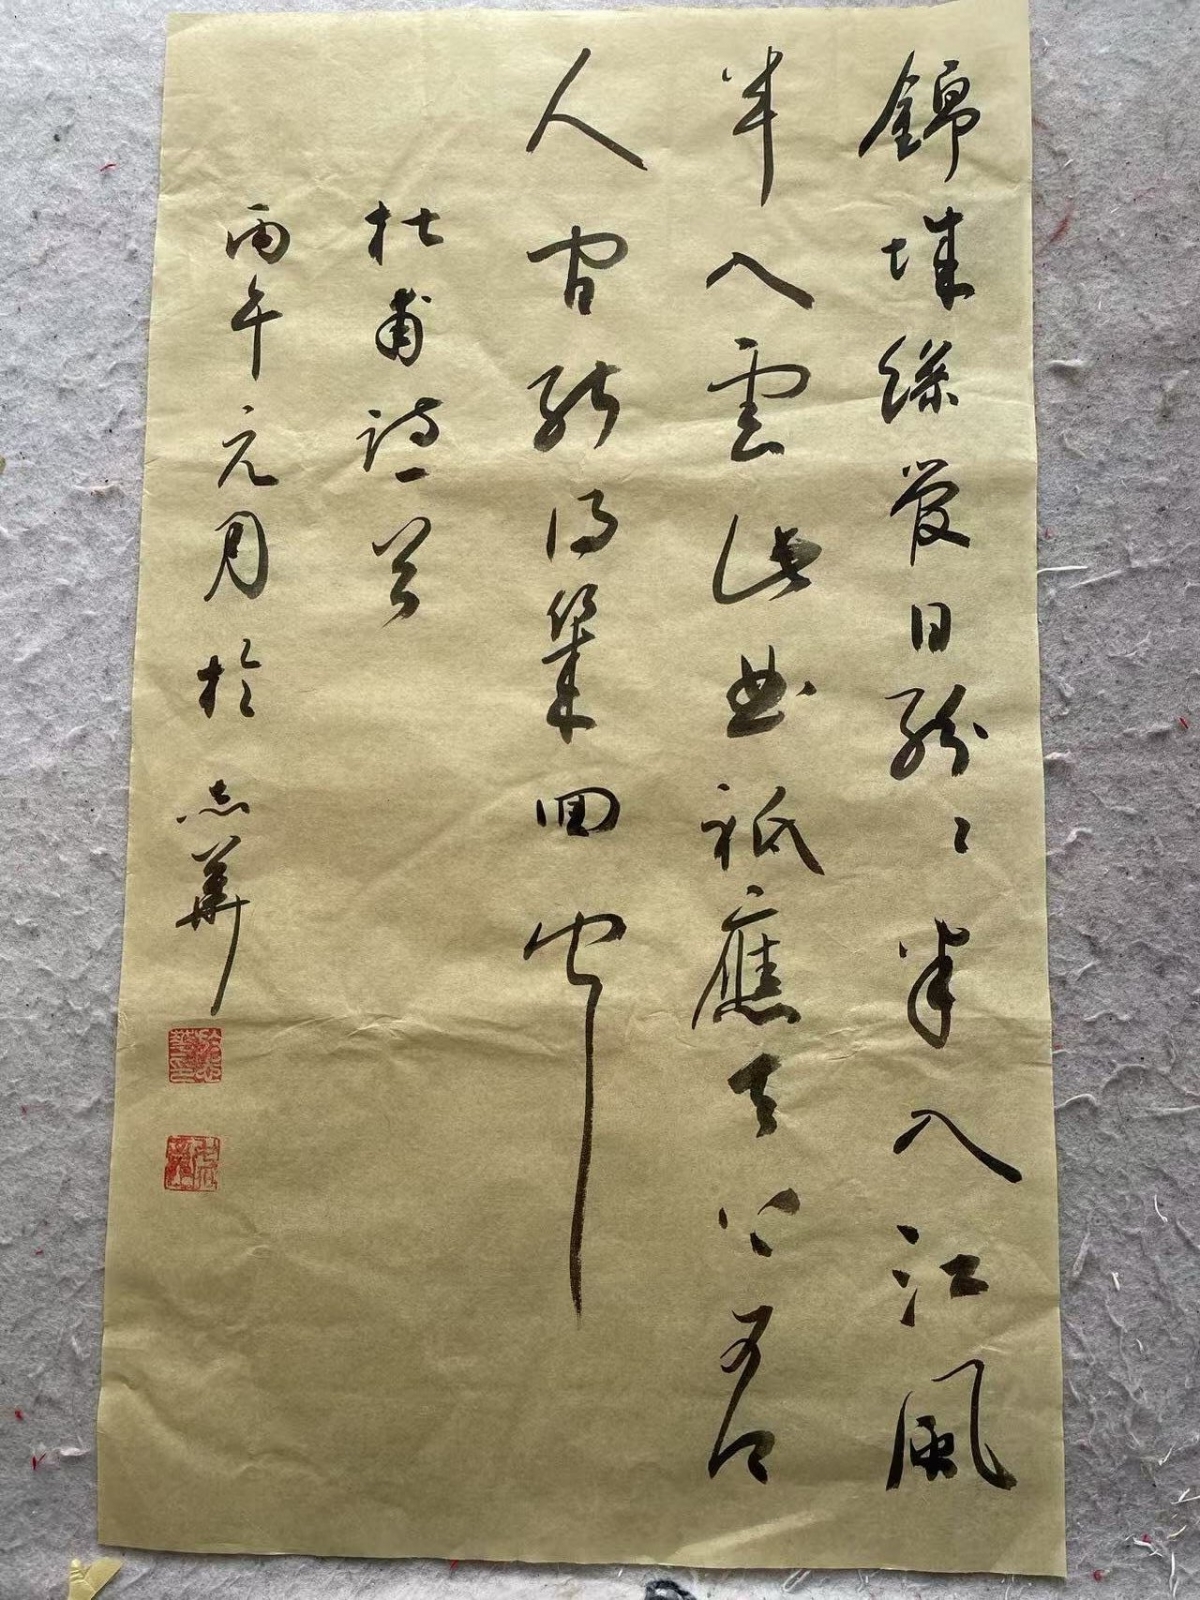 錦城絲管日紛〻半入江風
半入雲此曲祇應天上有
人間能得幾回聞
杜甫詩一首
丙午元月於志華